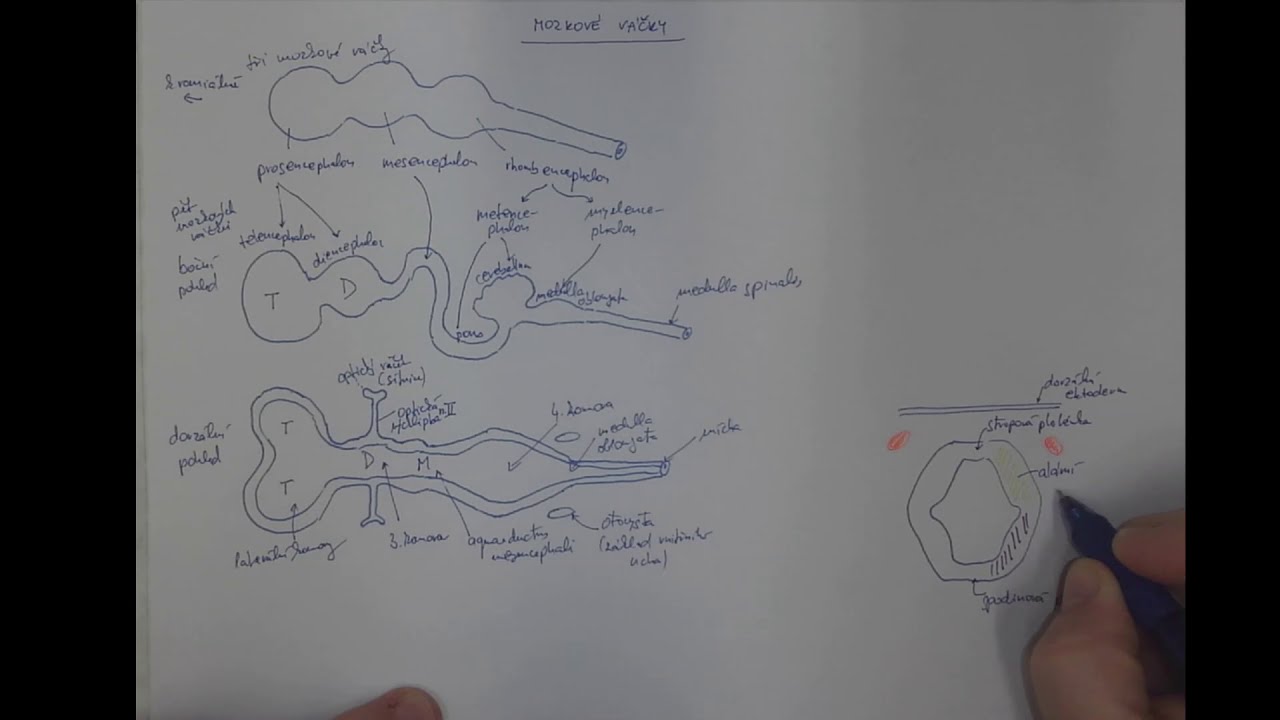 MOZKOVÉ VÁČKY
tři mozkové váčky
kraniálně
prosencephalon
mesencephalon
rhombencephalon
pět
mozkových
váčků
boční
pohled
telencephalon
diencephalon
metence-
phalon
myelence-
phalon
cerebellum
medulla
oblongata
medulla spinalis
T
D
pons
dorzální
pohled
optický váček
(sítnice)
optická
stopka n.II
4. komora
medulla
oblongata
mícha
T
D
M
T
laterální komory
3. komora
aquaeductus
mesencephali
otocysta
(základ vnitřního
ucha)
dorzální
ektoderm
stropová ploténka
alární
spodinová